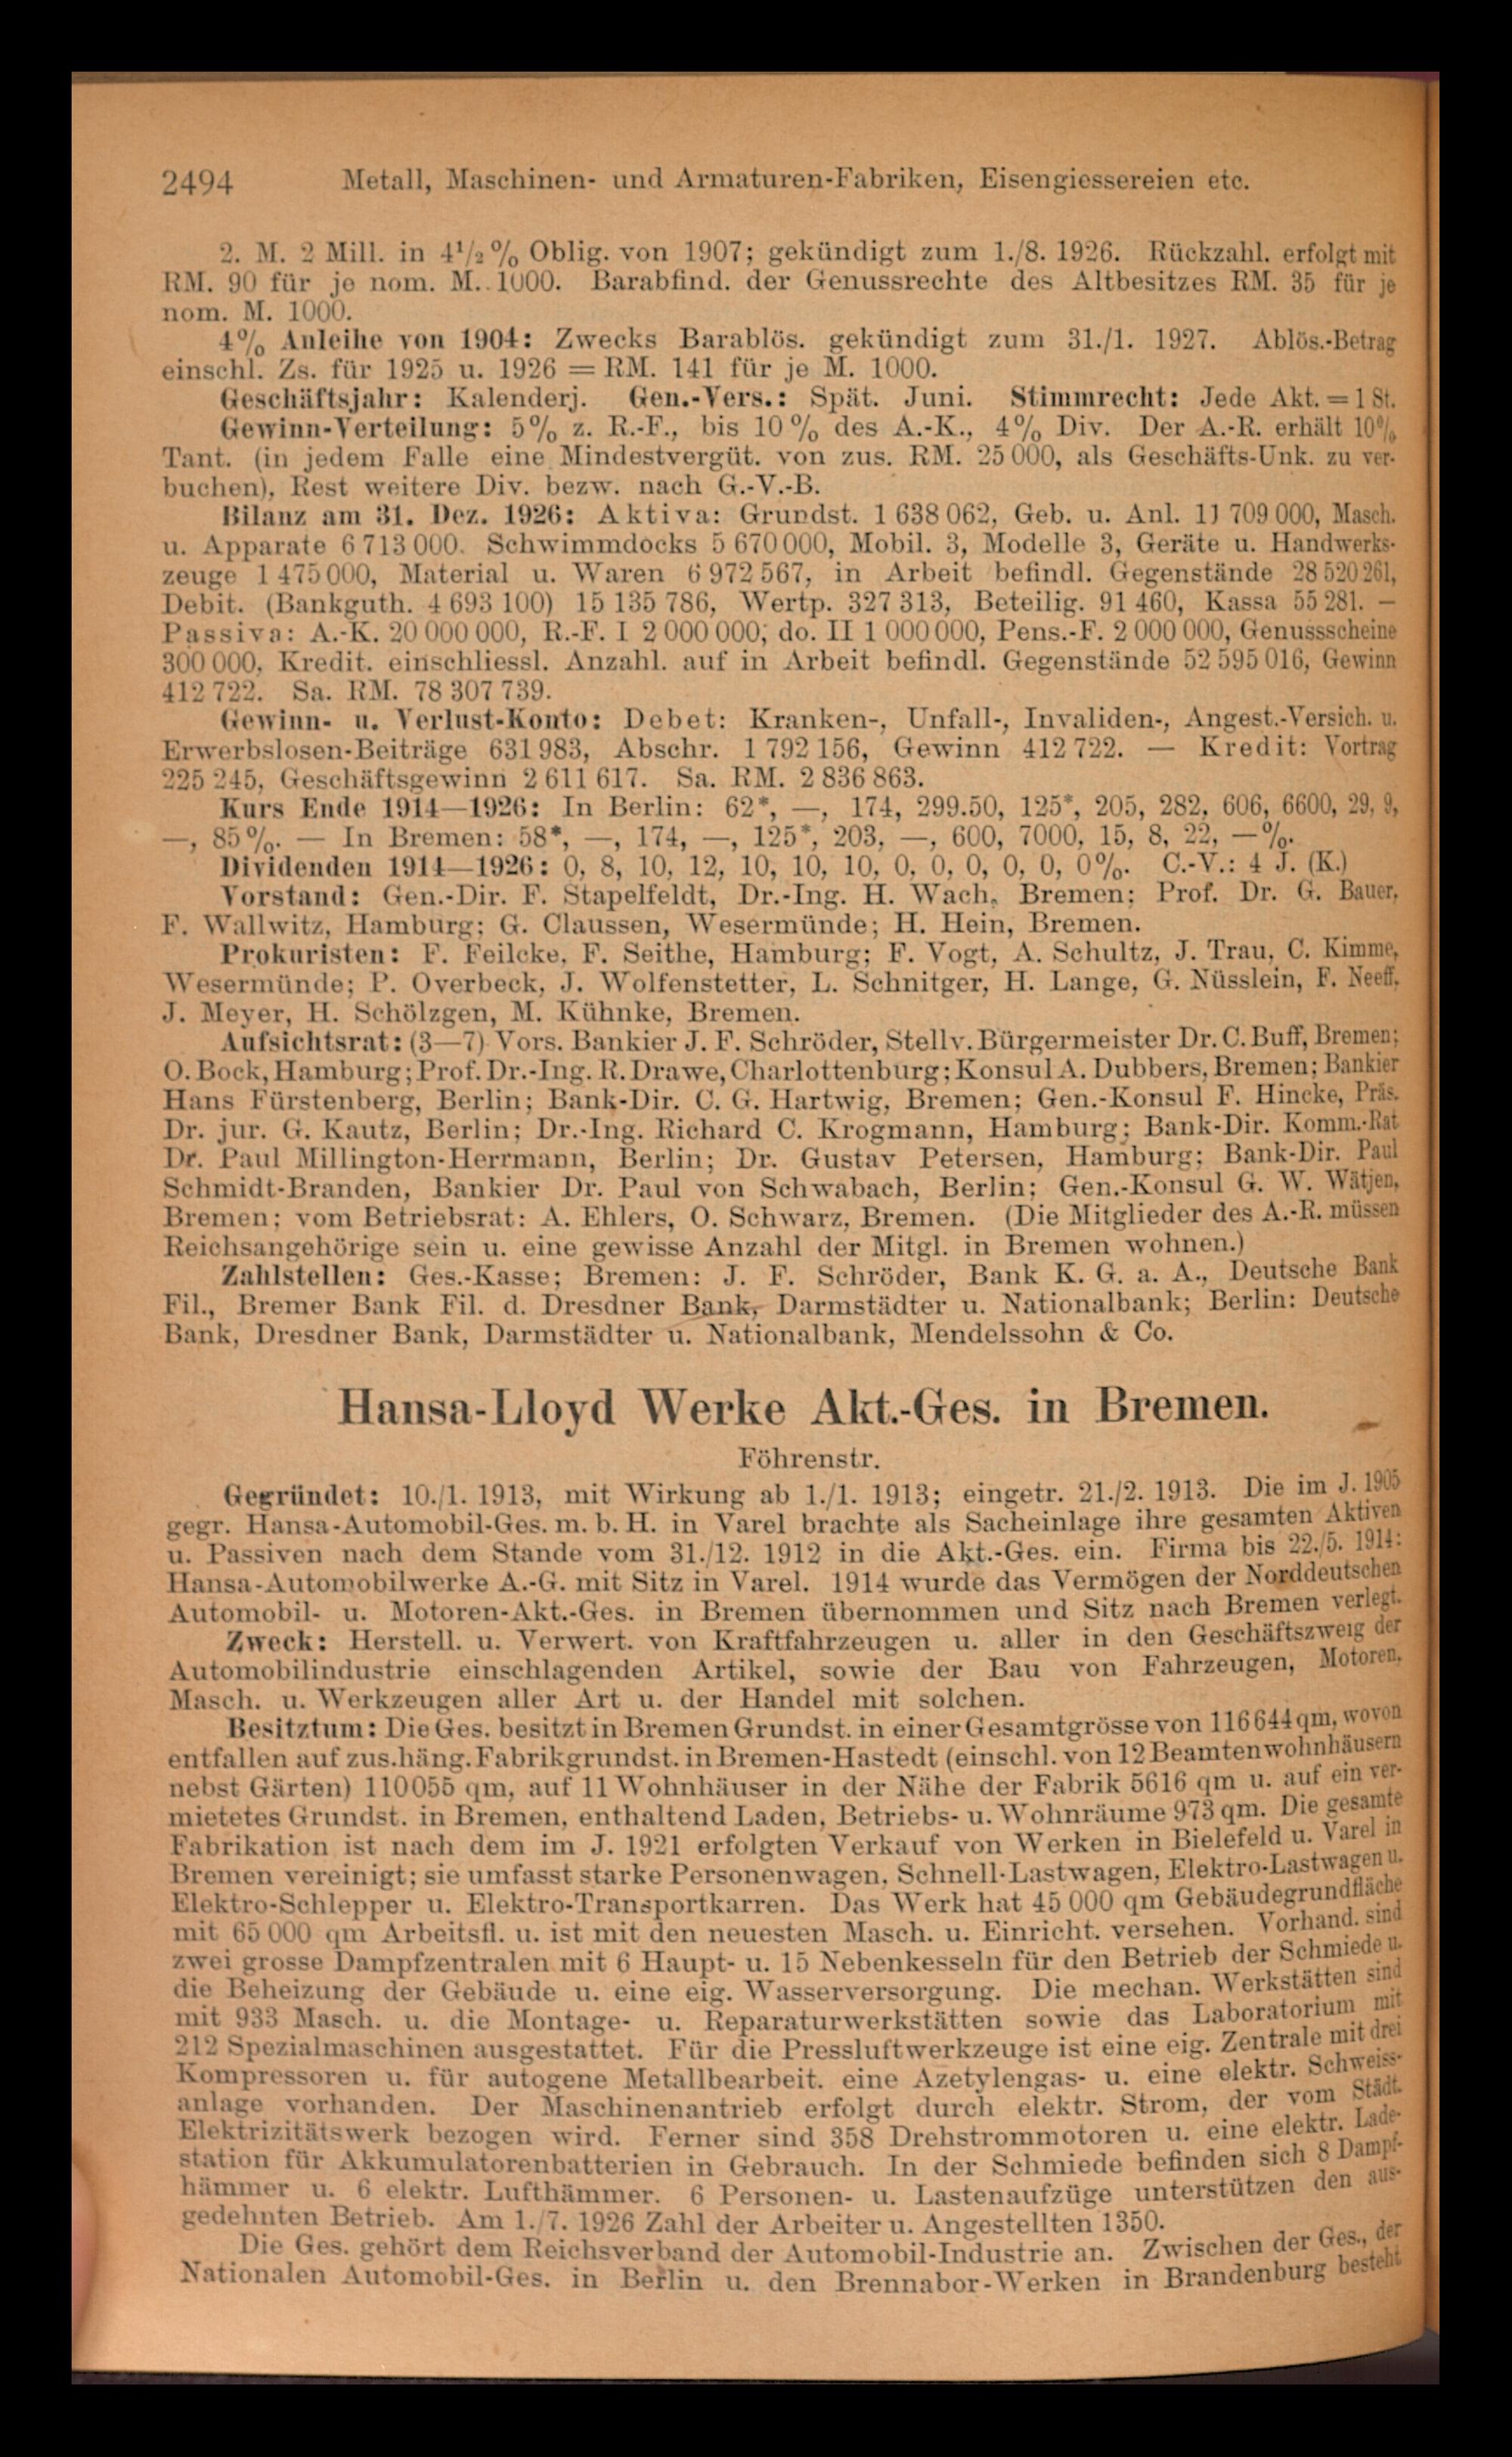 2494 Metall, Maschinen- und Armaturen-Fabriken, Eisengiessereien etc.
2. M. 2 Mill. in 4½% Oblig. von 1907; gekündigt zum 1./8. 1926. Rückzahl. erfolgt mit
RM. 90 für je nom. M. 1000. Barabfind. der Genussrechte des Altbesitzes RM. 35 für je
nom. M. 1000.
4% Anleihe von 1904: Zwecks Barablös. gekündigt zum 31./1. 1927. Ablös.-Betrag
einschl. Zs. für 1925 u. 1926 = RM. 141 für je M. 1000.
Geschäftsjahr: Kalenderj. Gen.-Vers.: Spät. Juni. Stimmrecht: Jede Akt. = 1 St.
Gewinn-Verteilung: 5% z. R.-F., bis 10% des A.-K., 4% Div. Der A.-R. erhält 10%
Tant. (in jedem Falle eine Mindestvergüt. von zus. RM. 25 000, als Geschäfts-Unk. zu ver-
buchen), Rest weitere Div. bezw. nach G.-V.-B.
Bilanz am 31. Dez. 1926: Aktiva: Grundst. 1 638 062, Geb. u. Anl. 11 709 000, Masch.
u. Apparate 6 713 000. Schwimmdocks 5 670 000, Mobil. 3, Modelle 3, Geräte u. Handwerks-
zeuge 1 475 000, Material u. Waren 6 972 567, in Arbeit befindl. Gegenstände 28 520 261,
Debit. (Bankguth. 4 693 100) 15 135 786, Wertp. 327 313, Beteilig. 91 460, Kassa 55 281. —
Passiva: A.-K. 20 000 000, R.-F. I 2 000 000, do. II 1 000 000, Pens.-F. 2 000 000, Genussscheine
300 000, Kredit. einschliessl. Anzahl. auf in Arbeit befindl. Gegenstände 52 595 016, Gewinn
412 722. Sa. RM. 78 307 739.
Gewinn- u. Verlust-Konto: Debet: Kranken-, Unfall-, Invaliden-, Angest.-Versich. u.
Erwerbslosen-Beiträge 631 983, Abschr. 1 792 156, Gewinn 412 722. — Kredit: Vortrag
225 245, Geschäftsgewinn 2 611 617. Sa. RM. 2 836 863.
Kurs Ende 1914—1926: In Berlin: 62*, —, 174, 299.50, 125*, 205, 282, 606, 6600, 29, 9,
—, 85%. — In Bremen: 58*, —, 174, —, 125*, 203, —, 600, 7000, 15, 8, 22, —%.
Dividenden 1914—1926: 0, 8, 10, 12, 10, 10, 10, 0, 0, 0, 0, 0, 0%. C.-V.: 4 J. (K.)
Vorstand: Gen.-Dir. F. Stapelfeldt, Dr.-Ing. H. Wach, Bremen; Prof. Dr. G. Bauer,
F. Wallwitz, Hamburg; G. Claussen, Wesermünde; H. Hein, Bremen.
Prokuristen: F. Feilcke, F. Seithe, Hamburg; F. Vogt, A. Schultz, J. Trau, C. Kimme,
Wesermünde; P. Overbeck, J. Wolfenstetter, L. Schnitger, H. Lange, G. Nüsslein, F. Neeff,
J. Meyer, H. Schölzgen, M. Kühnke, Bremen.
Aufsichtsrat: (3—7) Vors. Bankier J. F. Schröder, Stellv. Bürgermeister Dr. C. Buff, Bremen;
O. Bock, Hamburg; Prof. Dr.-Ing. R. Drawe, Charlottenburg; Konsul A. Dubbers, Bremen; Bankier
Hans Fürstenberg, Berlin; Bank-Dir. C. G. Hartwig, Bremen; Gen.-Konsul F. Hincke, Präs.
Dr. jur. G. Kautz, Berlin; Dr.-Ing. Richard C. Krogmann, Hamburg; Bank-Dir. Komm.-Rat
Dr. Paul Millington-Herrmann, Berlin; Dr. Gustav Petersen, Hamburg; Bank-Dir. Paul
Schmidt-Branden, Bankier Dr. Paul von Schwabach, Berlin; Gen.-Konsul G. W. Wätjen,
Bremen; vom Betriebsrat: A. Ehlers, O. Schwarz, Bremen. (Die Mitglieder des A.-R. müssen
Reichsangehörige sein u. eine gewisse Anzahl der Mitgl. in Bremen wohnen.)
Zahlstellen: Ges.-Kasse; Bremen: J. F. Schröder, Bank K. G. a. A., Deutsche Bank
Fil., Bremer Bank Fil. d. Dresdner Bank, Darmstädter u. Nationalbank; Berlin: Deutsche
Bank, Dresdner Bank, Darmstädter u. Nationalbank, Mendelssohn & Co.
Hansa-Lloyd Werke Akt.-Ges. in Bremen.
Föhrenstr.
Gegründet: 10./1. 1913, mit Wirkung ab 1./1. 1913; eingetr. 21./2. 1913. Die im J. 1905
gegr. Hansa-Automobil-Ges. m. b. H. in Varel brachte als Sacheinlage ihre gesamten Aktiven
u. Passiven nach dem Stande vom 31./12. 1912 in die Akt.-Ges. ein. Firma bis 22./5. 1914:
Hansa-Automobilwerke A.-G. mit Sitz in Varel. 1914 wurde das Vermögen der Norddeutschen
Automobil- u. Motoren-Akt.-Ges. in Bremen übernommen und Sitz nach Bremen verlegt.
Zweck: Herstell. u. Verwert. von Kraftfahrzeugen u. aller in den Geschäftszweig der
Automobilindustrie einschlagenden Artikel, sowie der Bau von Fahrzeugen, Motoren,
Masch. u. Werkzeugen aller Art u. der Handel mit solchen.
Besitztum: Die Ges. besitzt in Bremen Grundst. in einer Gesamtgrösse von 116 644 qm, wovon
entfallen auf zus.häng. Fabrikgrundst. in Bremen-Hastedt (einschl. von 12 Beamtenwohnhäusern
nebst Gärten) 110055 qm, auf 11 Wohnhäuser in der Nähe der Fabrik 5616 qm u. auf ein ver-
mietetes Grundst. in Bremen, enthaltend Laden, Betriebs- u. Wohnräume 973 qm. Die gesamte
Fabrikation ist nach dem im J. 1921 erfolgten Verkauf von Werken in Bielefeld u. Varel in
Bremen vereinigt; sie umfasst starke Personenwagen, Schnell-Lastwagen, Elektro-Lastwagen u.
Elektro-Schlepper u. Elektro-Transportkarren. Das Werk hat 45 000 qm Gebäudegrundfläche
mit 65 000 qm Arbeitsfl. u. ist mit den neuesten Masch. u. Einricht. versehen. Vorhand. sind
zwei grosse Dampfzentralen mit 6 Haupt- u. 15 Nebenkesseln für den Betrieb der Schmiede u.
die Beheizung der Gebäude u. eine eig. Wasserversorgung. Die mechan. Werkstätten sind
mit 933 Masch. u. die Montage- u. Reparaturwerkstätten sowie das Laboratorium mit
212 Spezialmaschinen ausgestattet. Für die Pressluftwerkzeuge ist eine eig. Zentrale mit drei
Kompressoren u. für autogene Metallbearbeit. eine Azetylengas- u. eine elektr. Schweiss-
anlage vorhanden. Der Maschinenantrieb erfolgt durch elektr. Strom, der vom Städt.
Elektrizitätswerk bezogen wird. Ferner sind 358 Drehstrommotoren u. eine elektr. Lade-
station für Akkumulatorenbatterien in Gebrauch. In der Schmiede befinden sich 8 Dampf-
hämmer u. 6 elektr. Lufthämmer. 6 Personen- u. Lastenaufzüge unterstützen den aus-
gedehnten Betrieb. Am 1./7. 1926 Zahl der Arbeiter u. Angestellten 1350.
Die Ges. gehört dem Reichsverband der Automobil-Industrie an. Zwischen der Ges., der
Nationalen Automobil-Ges. in Berlin u. den Brennabor-Werken in Brandenburg besteht